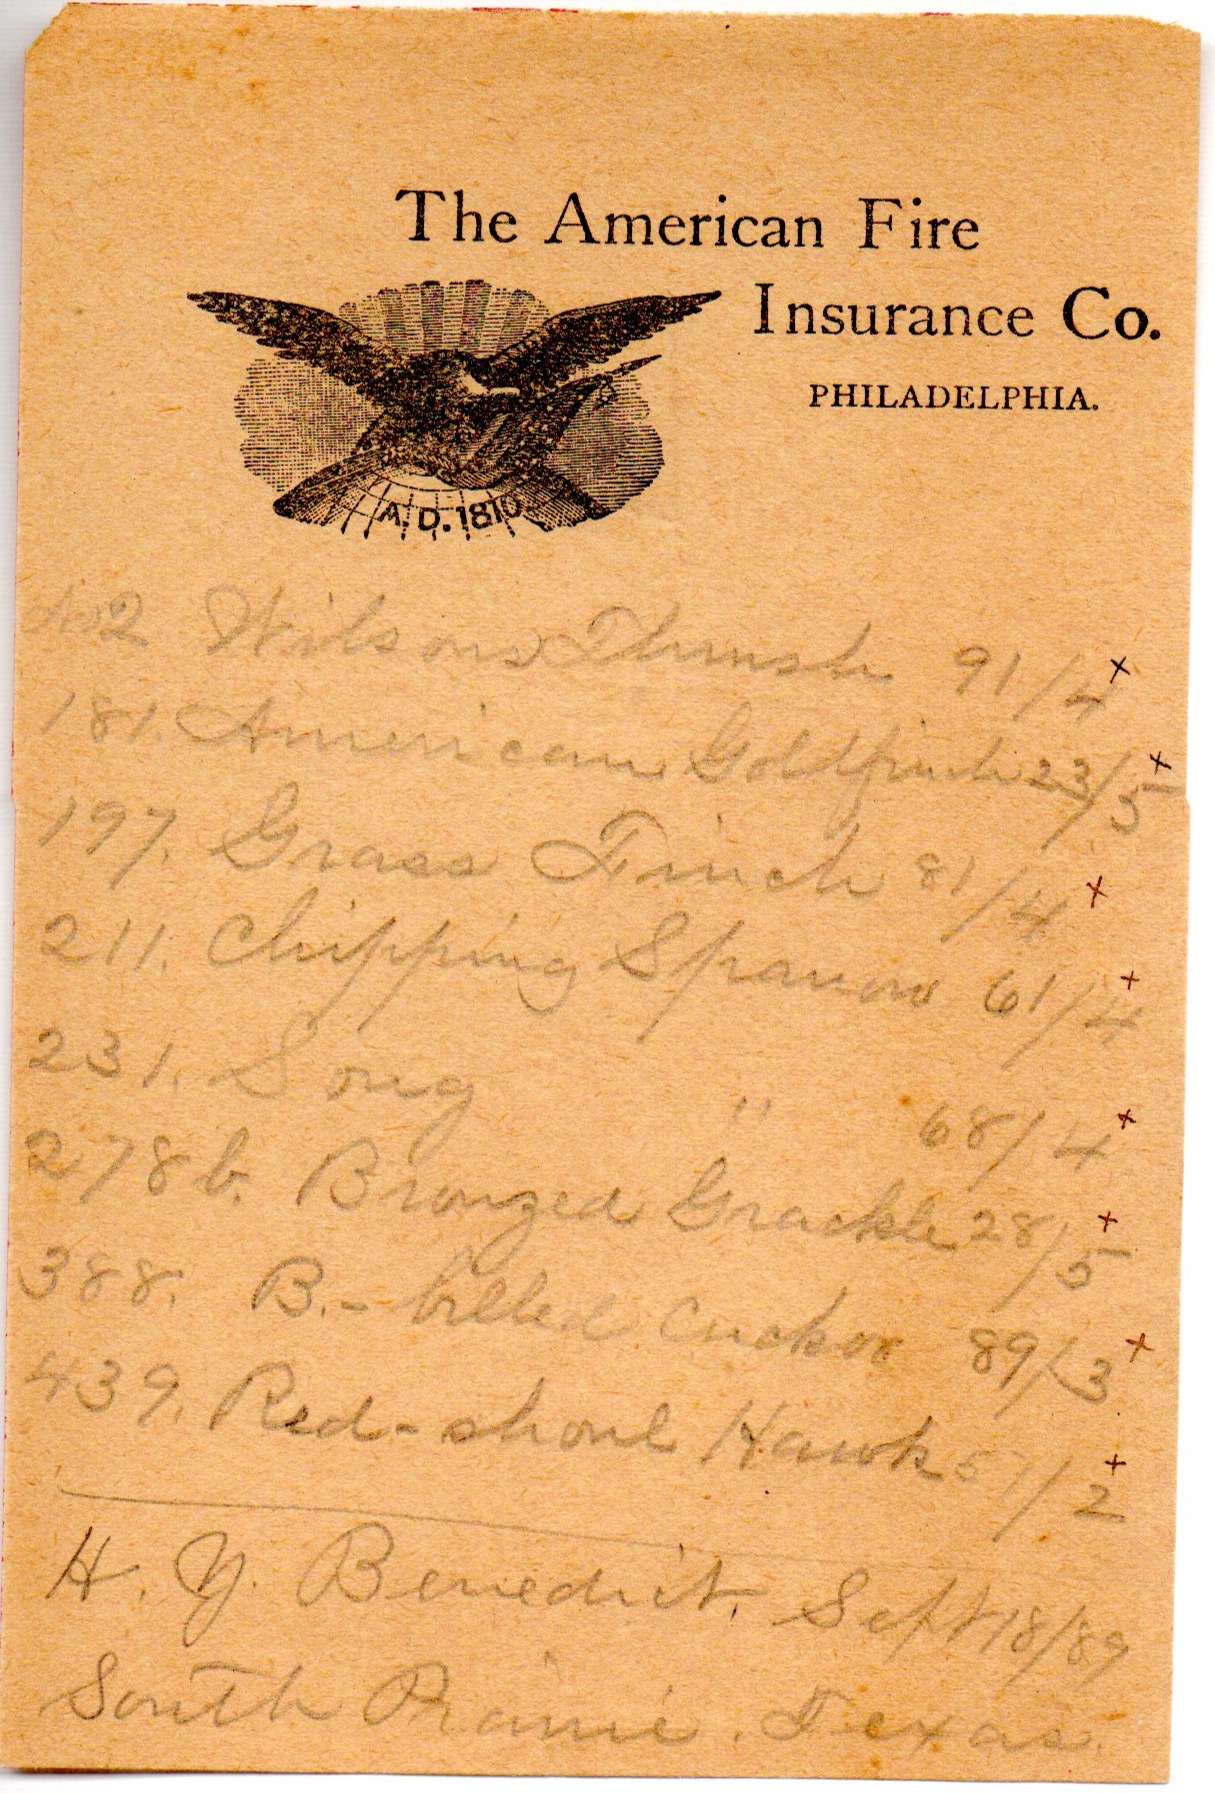 The American Fire
Insurance Co.
PHILADELPHIA.
A.D. 1810
No 2 Wilsons Thrush 91/4 x
181. American Goldfinch 23/5 x
197. Grass Finch 81/4 x
211. Chipping Sparrow 61/4 x
231. Song " 68/4 x
278b. Bronzed Grackle 28/5 x
388. B.-billed Cuckoo 89/3 x
439. Red-shoul Hawk 57/2 x
H. Y. Benedict. Sept 18/89
South Prairie. Texas.